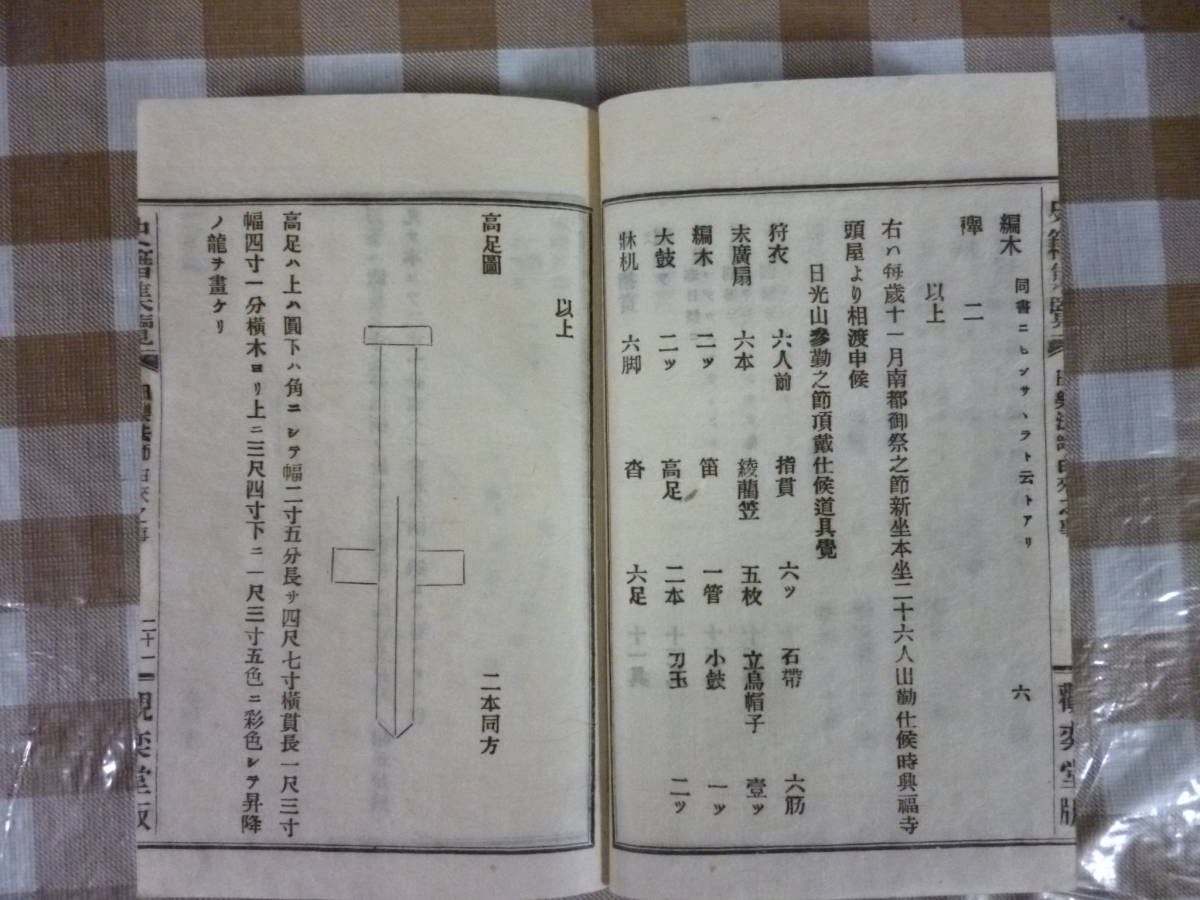 編木 同書ニヒンサヽラト云トアリ 六
襷 二
以上
右ハ每歲十一月南都御祭之節新坐本坐二十六人出勤仕候時興福寺
頭屋より相渡申候
日光山參勤之節頂戴仕候道具覺
狩衣 六人前 指貫 六ッ 石帶 六筋
末廣扇 六本 綾藺笠 五枚 立烏帽子 壹ッ
編木 二ッ 笛 一管 小鼓 一ッ
大鼓 二ッ 高足 二本 刀玉 二ッ
牀机 六脚 沓 六足
以上
高足圖 二本同方
高足ハ上ハ圓下ハ角ニシテ幅二寸五分長サ四尺七寸橫貫長一尺三寸
幅四寸一分橫木ヨリ上ニ三尺四寸下ニ一尺三寸五色ニ彩色シテ昇降
ノ龍ヲ畫ケリ
二十一
觀奕堂版